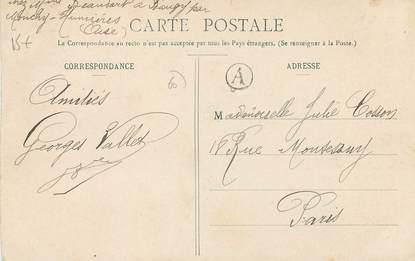 Beauvart à Bougy par
(Oise)
15+
CARTE POSTALE
La Correspondance au recto n'est pas acceptée par tous les Pays étrangers. (Se renseigner à la Poste.)
CORRESPONDANCE
60
Amitiés
Georges Vallet
A
ADRESSE
Mademoiselle Julie Cosson
18 Rue Montessuy
Paris